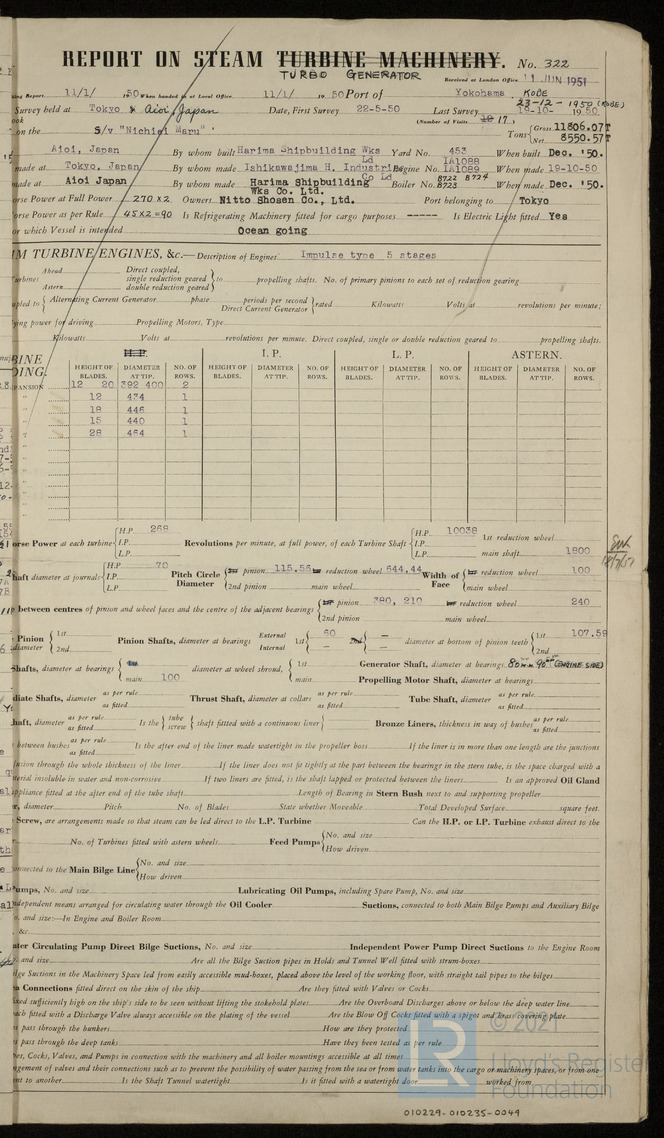 REPORT ON STEAM TURBINE MACHINERY. No. 322
TURBO GENERATOR
Received at London Office 11 JUN 1951
11/1/ 1950 When handed in at Local Office 11/1/ 1950 Port of Yokohama KOBE
23-12-1950 (KOBE)
Survey held at Tokyo & Aioi, Japan Date, First Survey 22-5-50 Last Survey 19-10- 1950
(Number of Visits 17)
on the S/v "Nichiei Maru" Tons Gross 11806.07T
Net 8550.57T
Aioi, Japan By whom built Harima Shipbuilding Wks Ld Yard No. 453 When built Dec. '50.
made at Tokyo, Japan By whom made Ishikawajima H. Industries Co Ld Engine No. IA1088 IA1089 When made 19-10-50
made at Aioi Japan By whom made Harima Shipbuilding Wks Co. Ltd. Boiler No. B722 B724 B723 When made Dec. '50.
orse Power at Full Power 270 x 2 Owners Nitto Shosen Co., Ltd. Port belonging to Tokyo
orse Power as per Rule 45 x 2 = 90 Is Refrigerating Machinery fitted for cargo purposes ----- Is Electric Light fitted Yes
or which Vessel is intended Ocean going
M TURBINE ENGINES, &c.— Description of Engines Impulse type 5 stages
urbines Ahead Direct coupled, single reduction geared to propelling shafts. No. of primary pinions to each set of reduction gearing
Astern double reduction geared
upled to Alternating Current Generator phase periods per second rated Kilowatts Volts at revolutions per minute;
Direct Current Generator
ying power for driving Propelling Motors, Type
Kilowatts Volts at revolutions per minute. Direct coupled, single or double reduction geared to propelling shafts.
BINE DING. H.P. I.P. L.P. ASTERN.
HEIGHT OF BLADES. DIAMETER AT TIP. NO. OF ROWS. HEIGHT OF BLADES. DIAMETER AT TIP. NO. OF ROWS. HEIGHT OF BLADES. DIAMETER AT TIP. NO. OF ROWS. HEIGHT OF BLADES. DIAMETER AT TIP. NO. OF ROWS.
PANSION 12 20 392 400 2
12 434 1
18 446 1
15 440 1
28 464 1
orse Power at each turbine H.P. 268 I.P. L.P. Revolutions per minute, at full power, of each Turbine Shaft H.P. 10038 I.P. L.P. 1st reduction wheel
main shaft 1800
haft diameter at journals H.P. 70 I.P. L.P. Pitch Circle Diameter 1st pinion 115.56 1st reduction wheel 644.44 Width of Face 1st reduction wheel 100
2nd pinion main wheel main wheel
between centres of pinion and wheel faces and the centre of the adjacent bearings 1st pinion 380, 210 1st reduction wheel 240
2nd pinion main wheel
Pinion diameter 1st 2nd Pinion Shafts, diameter at bearings External 60 Internal – 2nd – – diameter at bottom of pinion teeth 1st 107.59
2nd
Shafts, diameter at bearings 1st main 100 diameter at wheel shroud, 1st main Generator Shaft, diameter at bearings 80mm 90mm (ENGINE SIDE)
Propelling Motor Shaft, diameter at bearings
diate Shafts, diameter as per rule as fitted Thrust Shaft, diameter at collars as per rule as fitted Tube Shaft, diameter as per rule as fitted
haft, diameter as per rule as fitted Is the tube screw shaft fitted with a continuous liner Bronze Liners, thickness in way of bushes as per rule as fitted
between bushes as per rule as fitted Is the after end of the liner made watertight in the propeller boss If the liner is in more than one length are the junctions
fusion through the whole thickness of the liner If the liner does not fit tightly at the part between the bearings in the stern tube, is the space charged with a
terial insoluble in water and non-corrosive If two liners are fitted, is the shaft lapped or protected between the liners Is an approved Oil Gland
ppliance fitted at the after end of the tube shaft Length of Bearing in Stern Bush next to and supporting propeller
r, diameter Pitch No. of Blades State whether Moveable Total Developed Surface square feet.
Screw, are arrangements made so that steam can be led direct to the L.P. Turbine Can the H.P. or I.P. Turbine exhaust direct to the
No. of Turbines fitted with astern wheels Feed Pumps No. and size
How driven
nnected to the Main Bilge Line No. and size
How driven
umps, No. and size Lubricating Oil Pumps, including Spare Pump, No. and size
ndependent means arranged for circulating water through the Oil Cooler Suctions, connected to both Main Bilge Pumps and Auxiliary Bilge
o. and size:—In Engine and Boiler Room
&c.
ater Circulating Pump Direct Bilge Suctions, No. and size Independent Power Pump Direct Suctions to the Engine Room
o. and size Are all the Bilge Suction pipes in Holds and Tunnel Well fitted with strum-boxes
lge Suctions in the Machinery Space led from easily accessible mud-boxes, placed above the level of the working floor, with straight tail pipes to the bilges
a Connections fitted direct on the skin of the ship Are they fitted with Valves or Cocks
ixed sufficiently high on the ship's side to be seen without lifting the stokehold plates Are the Overboard Discharges above or below the deep water line
ach fitted with a Discharge Valve always accessible on the plating of the vessel Are the Blow Off Cocks fitted with a spigot and brass covering plate
s pass through the bunkers How are they protected
s pass through the deep tanks Have they been tested as per rule
es, Cocks, Valves, and Pumps in connection with the machinery and all boiler mountings accessible at all times
ngement of valves and their connections such as to prevent the possibility of water passing from the sea or from water tanks into the cargo or machinery spaces, or from one
nt to another Is the Shaft Tunnel watertight Is it fitted with a watertight door worked from
© 2021
Lloyd's Register
Foundation
010229-010235-0049